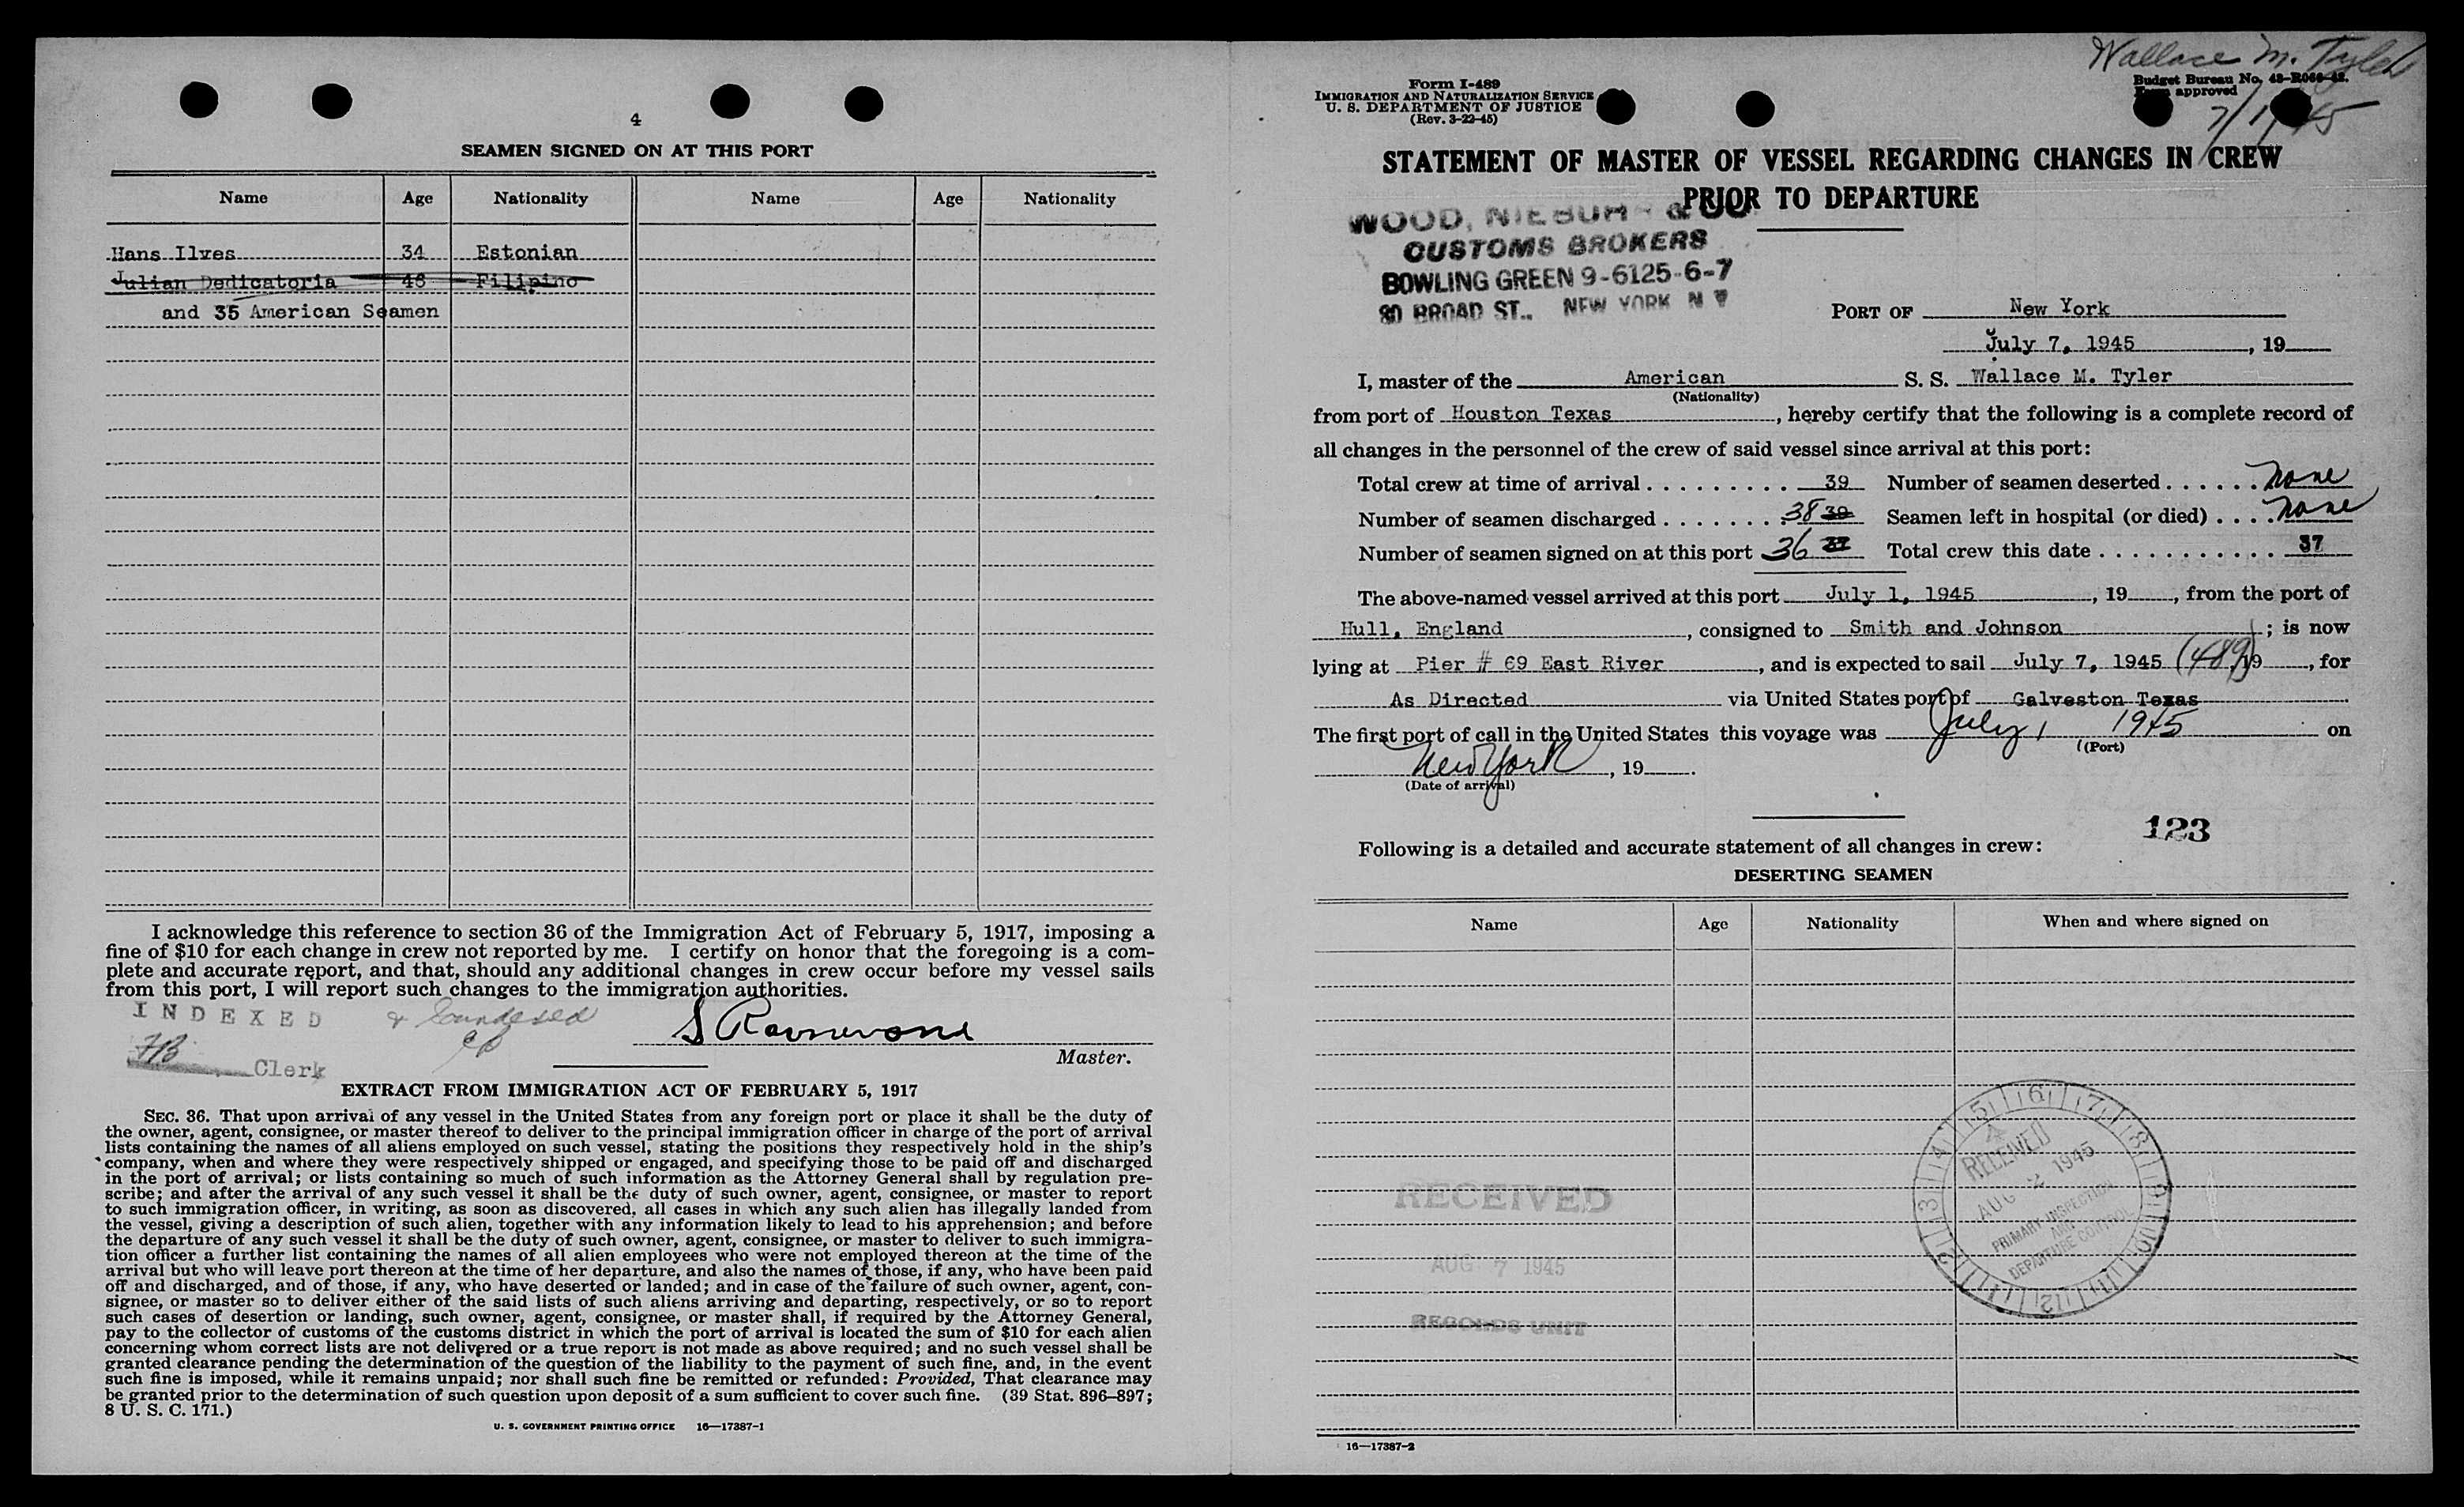 4
SEAMEN SIGNED ON AT THIS PORT
Name Age Nationality Name Age Nationality
Hans Ilves 34 Estonian
Julian Dedicatoria 46 Filipino
and 35 American Seamen
I acknowledge this reference to section 36 of the Immigration Act of February 5, 1917, imposing a
fine of $10 for each change in crew not reported by me. I certify on honor that the foregoing is a com-
plete and accurate report, and that, should any additional changes in crew occur before my vessel sails
from this port, I will report such changes to the immigration authorities.
INDEXED
FB Clerk
Master.
EXTRACT FROM IMMIGRATION ACT OF FEBRUARY 5, 1917
SEC. 36. That upon arrival of any vessel in the United States from any foreign port or place it shall be the duty of
the owner, agent, consignee, or master thereof to deliver to the principal immigration officer in charge of the port of arrival
lists containing the names of all aliens employed on such vessel, stating the positions they respectively hold in the ship's
company, when and where they were respectively shipped or engaged, and specifying those to be paid off and discharged
in the port of arrival; or lists containing so much of such information as the Attorney General shall by regulation pre-
scribe; and after the arrival of any such vessel it shall be the duty of such owner, agent, consignee, or master to report
to such immigration officer, in writing, as soon as discovered, all cases in which any such alien has illegally landed from
the vessel, giving a description of such alien, together with any information likely to lead to his apprehension; and before
the departure of any such vessel it shall be the duty of such owner, agent, consignee, or master to deliver to such immigra-
tion officer a further list containing the names of all alien employees who were not employed thereon at the time of the
arrival but who will leave port thereon at the time of her departure, and also the names of those, if any, who have been paid
off and discharged, and of those, if any, who have deserted or landed; and in case of the failure of such owner, agent, con-
signee, or master so to deliver either of the said lists of such aliens arriving and departing, respectively, or so to report
such cases of desertion or landing, such owner, agent, consignee, or master shall, if required by the Attorney General,
pay to the collector of customs of the customs district in which the port of arrival is located the sum of $10 for each alien
concerning whom correct lists are not delivered or a true report is not made as above required; and no such vessel shall be
granted clearance pending the determination of the question of the liability to the payment of such fine, and, in the event
such fine is imposed, while it remains unpaid; nor shall such fine be remitted or refunded: Provided, That clearance may
be granted prior to the determination of such question upon deposit of a sum sufficient to cover such fine. (39 Stat. 896–897;
8 U. S. C. 171.)
U. S. GOVERNMENT PRINTING OFFICE 16—17387-1
Wallace M. Tyler
7/1/45
Form I-489
IMMIGRATION AND NATURALIZATION SERVICE
U. S. DEPARTMENT OF JUSTICE
(Rev. 3-22-45)
Budget Bureau No. 43-R066-42.
approved
STATEMENT OF MASTER OF VESSEL REGARDING CHANGES IN CREW
PRIOR TO DEPARTURE
WOOD, NIEBUHR & CO
CUSTOMS BROKERS
BOWLING GREEN 9-6125-6-7
80 BROAD ST., NEW YORK N Y
PORT OF New York
July 7, 1945, 19
I, master of the American S. S. Wallace M. Tyler
(Nationality)
from port of Houston Texas, hereby certify that the following is a complete record of
all changes in the personnel of the crew of said vessel since arrival at this port:
Total crew at time of arrival 39 Number of seamen deserted none
Number of seamen discharged 38 39 Seamen left in hospital (or died) none
Number of seamen signed on at this port 36 37 Total crew this date 37
The above-named vessel arrived at this port July 1, 1945, 19, from the port of
Hull, England, consigned to Smith and Johnson; is now
lying at Pier # 69 East River, and is expected to sail July 7, 1945 (489) 19, for
As Directed via United States port of Galveston Texas
The first port of call in the United States this voyage was July 1 1945 on
(Port)
New York, 19.
(Date of arrival)
123
Following is a detailed and accurate statement of all changes in crew:
DESERTING SEAMEN
Name Age Nationality When and where signed on
5 6 7 8 9 10 11 12 1 2 3 4
RECEIVED
AUG 2 1945
PRIMARY INSPECTION
AND
DEPARTURE CONTROL
RECEIVED
AUG 7 1945
RECORDS UNIT
16—17387-2